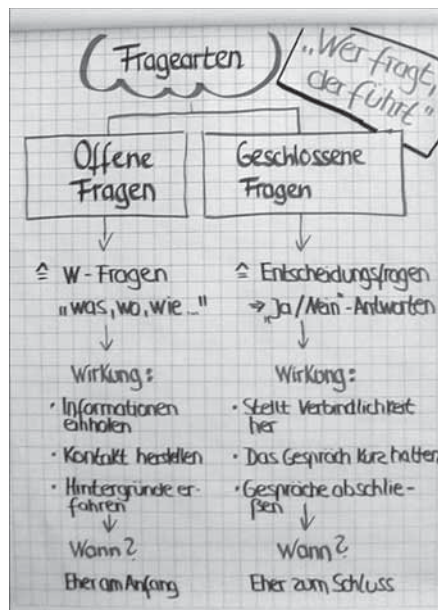 Fragearten
„Wer fragt,
der führt"
Offene
Fragen
≙ W-Fragen
„was, wo, wie..."
Wirkung:
· Informationen
einholen
· Kontakt herstellen
· Hintergründe er-
fahren
Wann?
Eher am Anfang
Geschlossene
Fragen
≙ Entscheidungsfragen
⇒ „Ja/Nein"-Antworten
Wirkung:
· Stellt Verbindlichkeit
her
· Das Gespräch kurz halten
· Gespräche abschlie-
ßen
Wann?
Eher zum Schluss